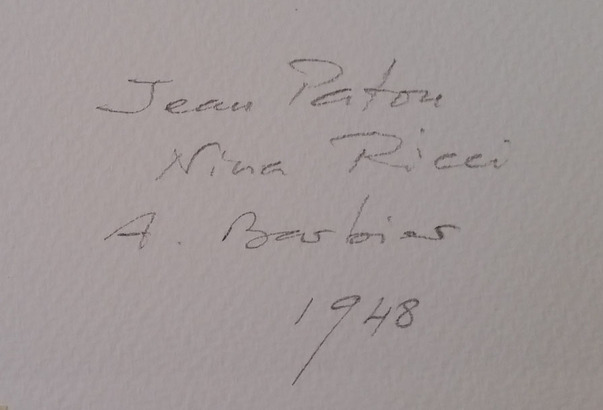 Jean Patou
Nina Ricci
A. Barbier
1948